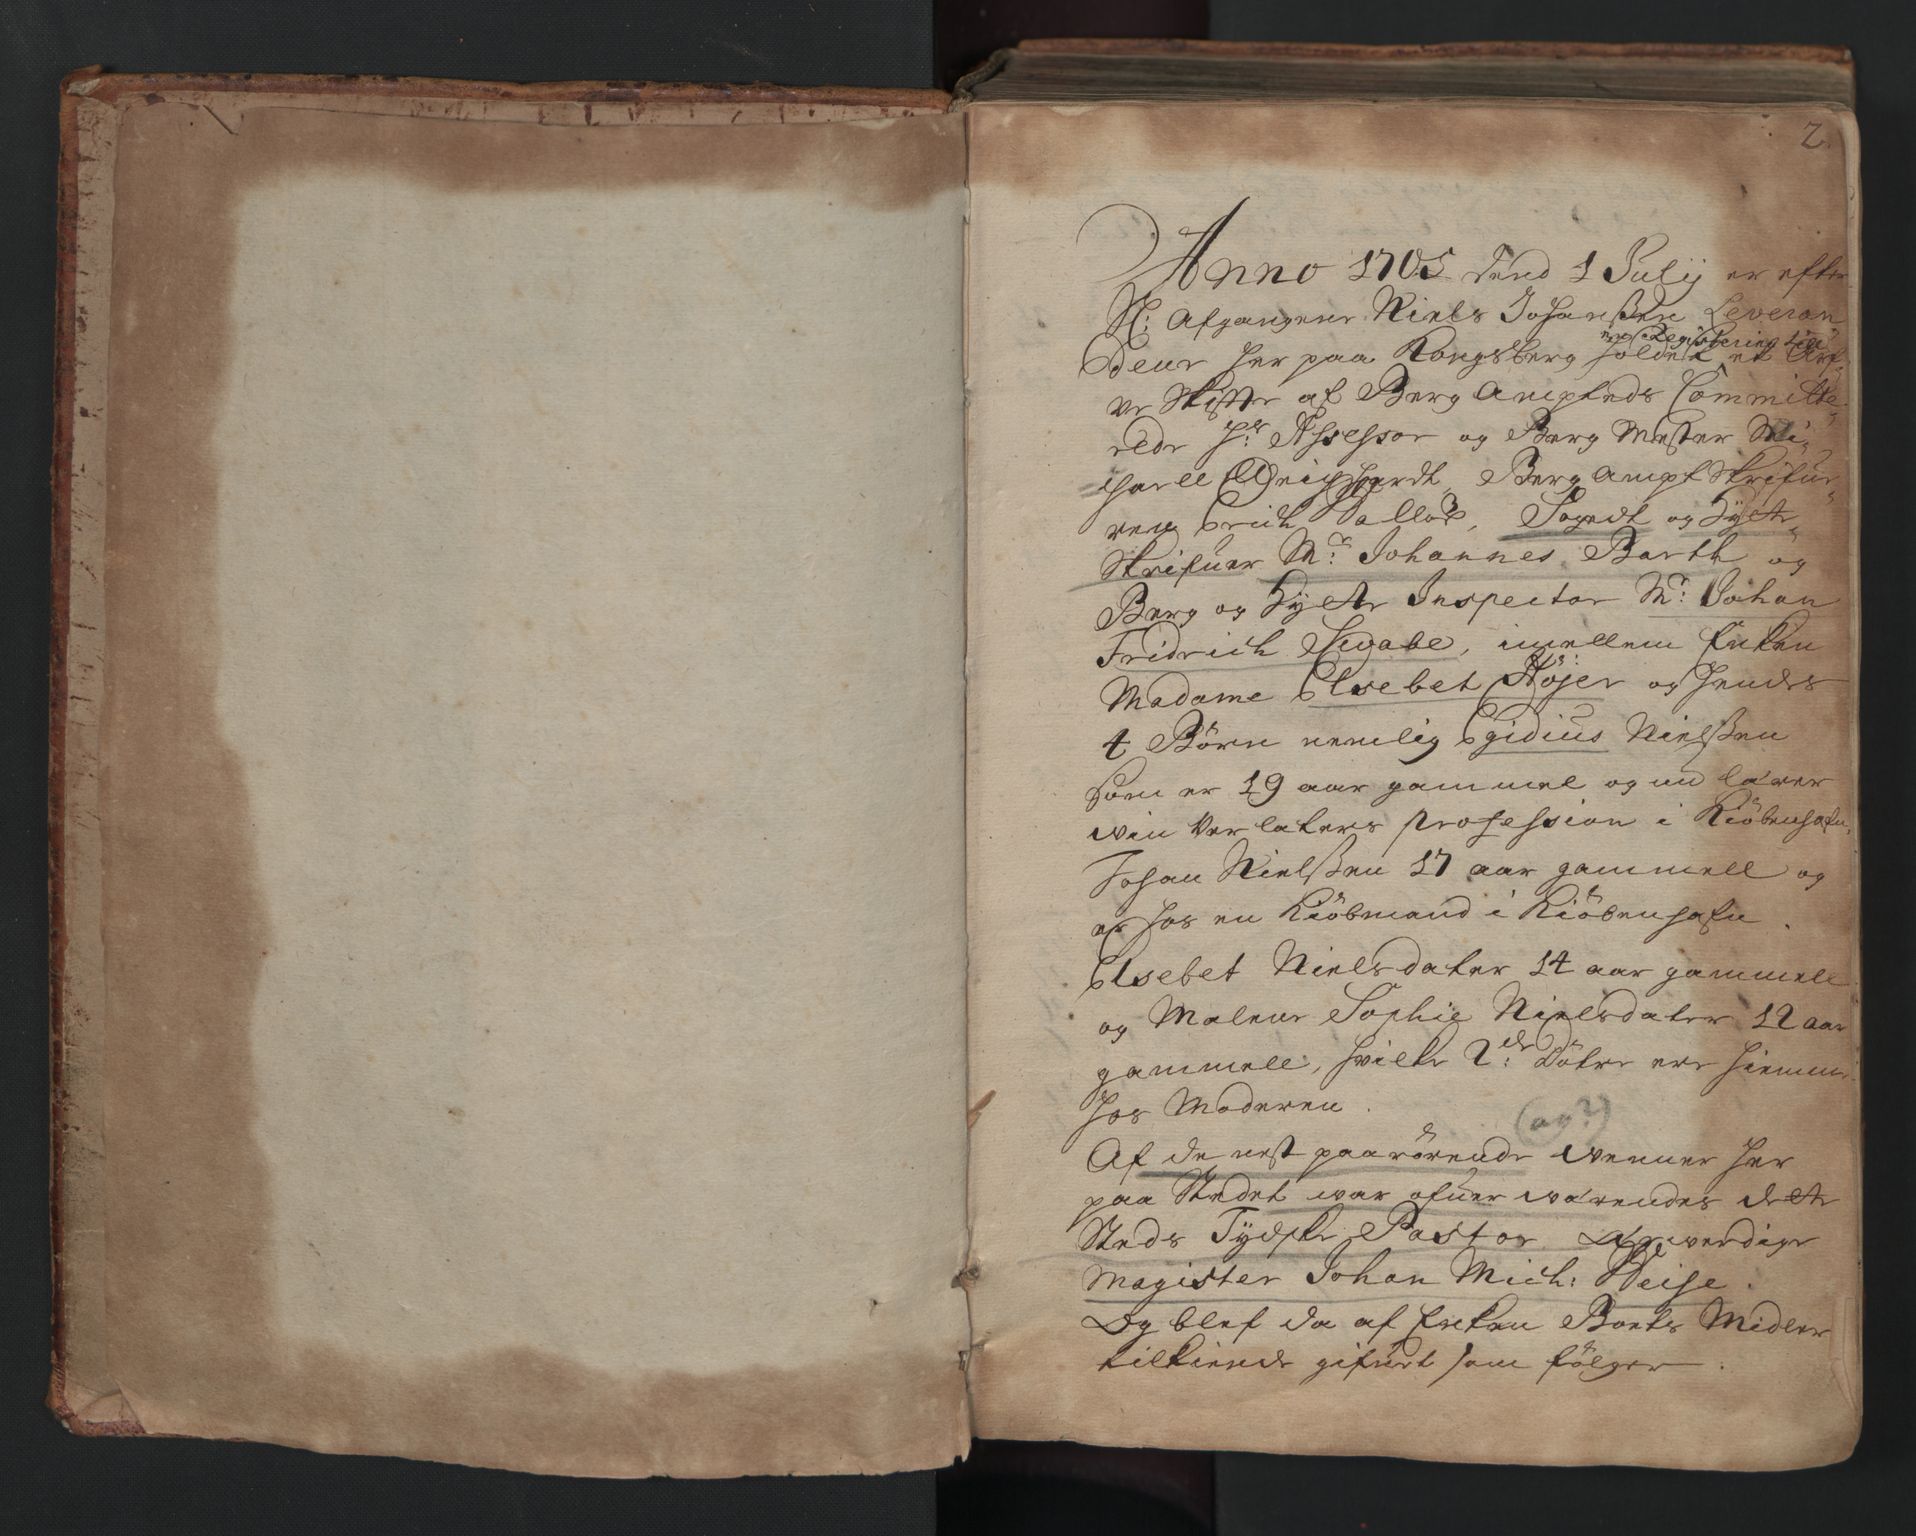 2
Anno 1705 dend 1 Julij er efter
Sl: Afgangene Niels Johanßen Leveran
deur her paa Kongsberg holdet et Arf-
een Registering till
ve Skifte af Berg Ampteds Committe-
rede Hr: Assessor og Berg Mester Mi-
chaell Berg Ampt Skrifue-
ren Erich Sallos, Fogedt og Hytte
Skrifuer Mr: Johannes Barth og
Berg og Hytte Inspector Mr: Johan
Fridrich Swabe, imellem Enken
Madame Elsebet Höjer og hendes
4 Börn nemlig Egidius Nielßen
som er 19 aar gammel og nu lærer
win Verlaters profession i Kiöbenhafn,
Johan Nielßen 17 aar gammell og
er hos en Kiöbmand i Kiöbenhafn.
Elsebet Nielsdater 14 aar gammell
og Malene Sophie Nielsdater 12 aar
gammell, hvilke 2de: Dötre ere hiemme
hos Moderen.
(og?)
Af de nest paarörende wenner her
paa Stedet war ofuer wærendes dette
Steds Tydske Pastor Ærwerdige
Magister Johan Mich: Heise.
Og blef da af Enken Boets Midler
tilkiende gifuet som fölger.